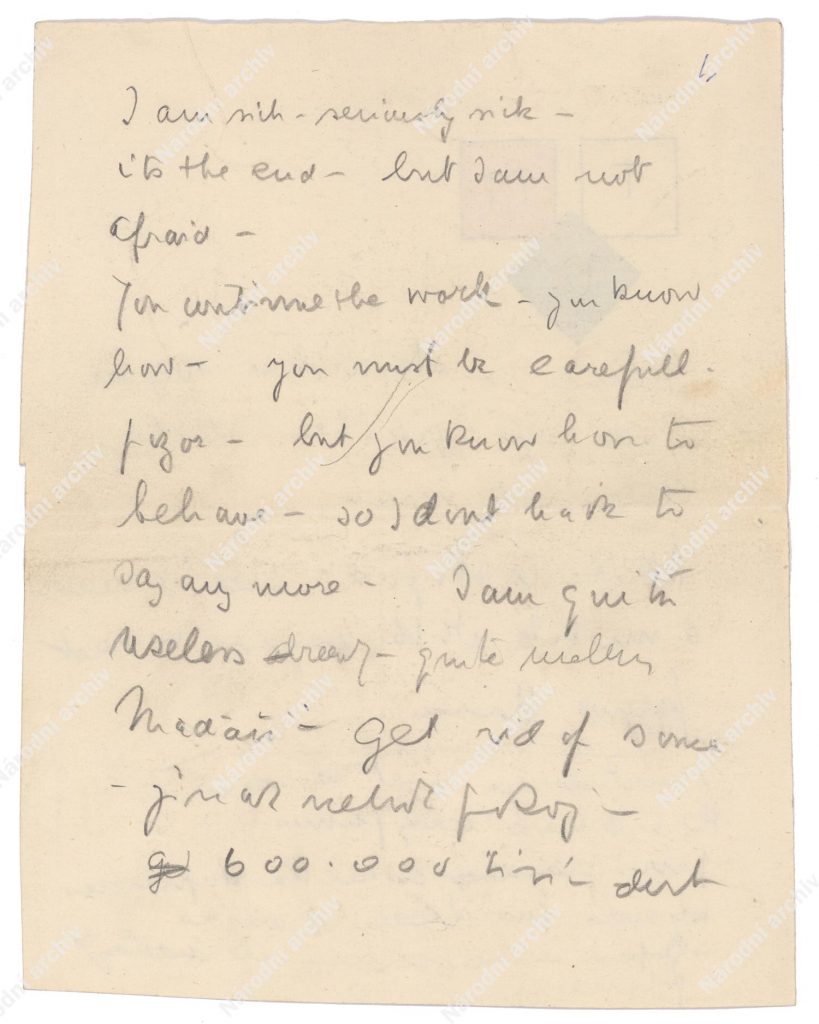 I am sick - seriously sick -
its the end - but I am not
afraid -
You continue the work - you know
how - you must be carefull.
pozor - but you know how to
behave - so I dont have to
say any more - I am quite
useless - quite
Maďaři - get rid of some
- jinak nebude pokoj -
600.000